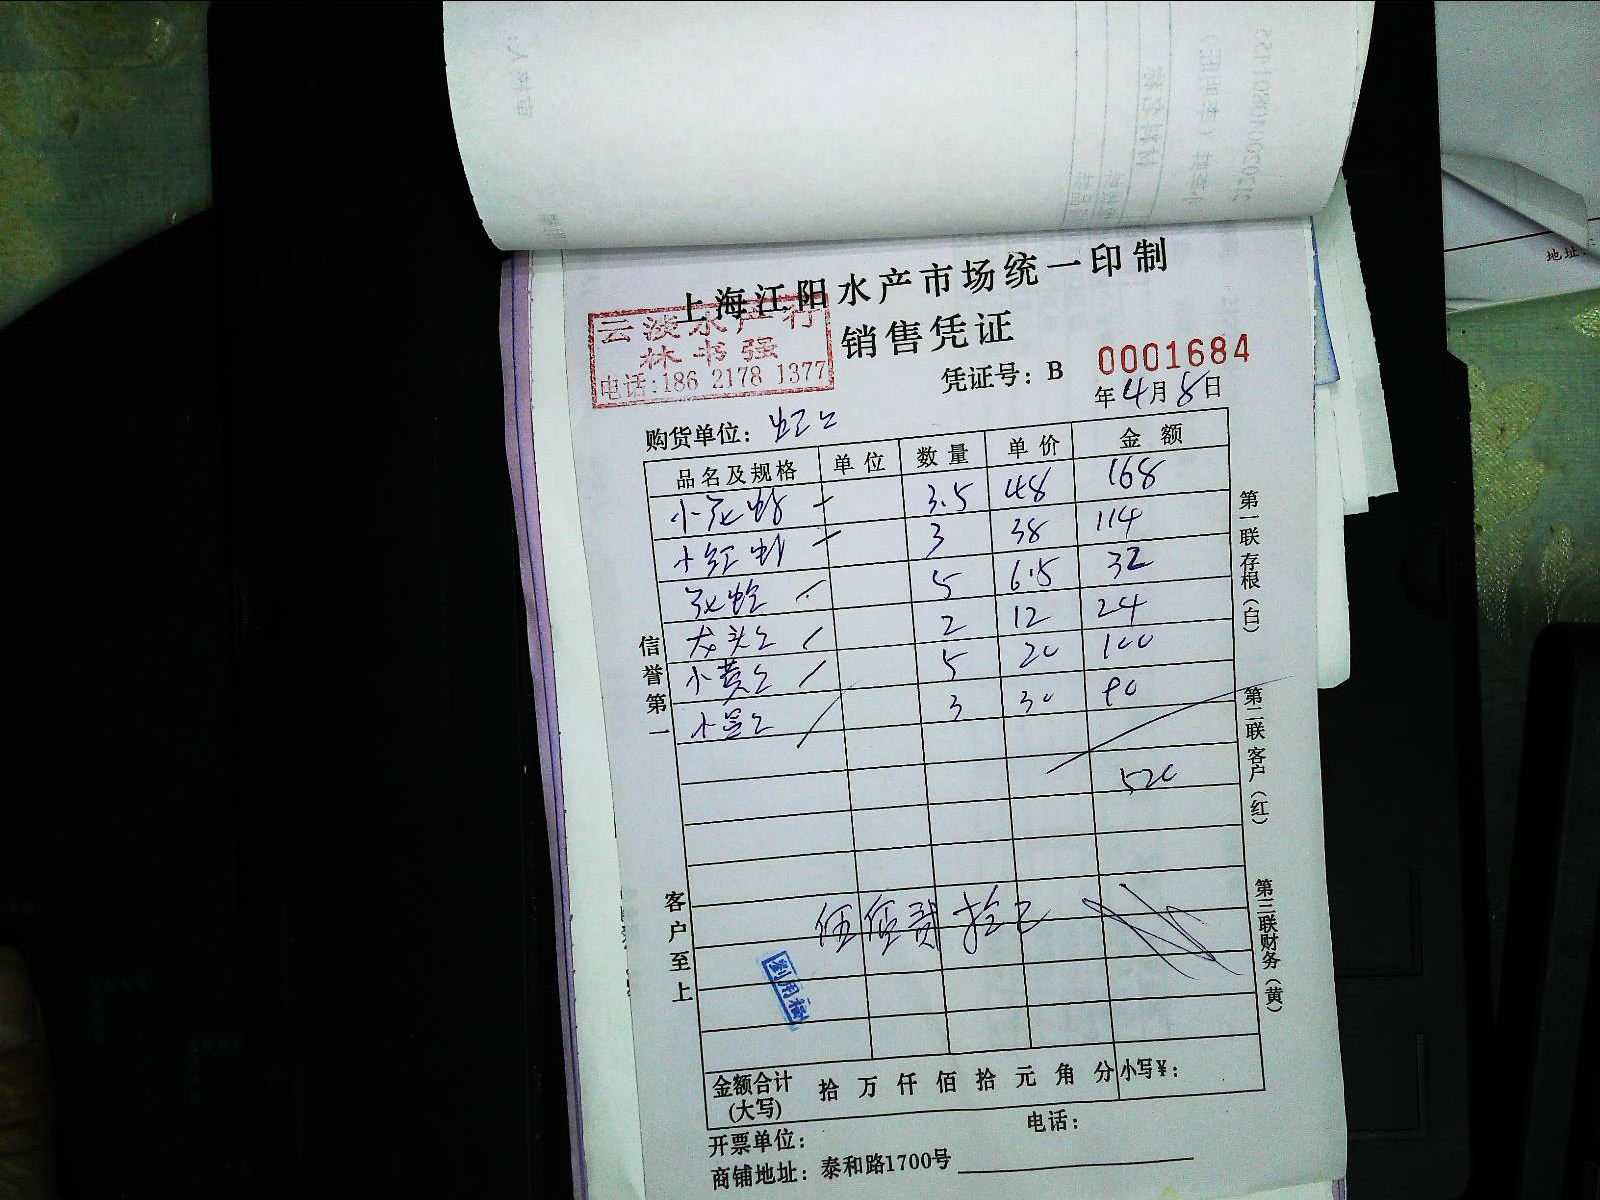 上海江阳水产市场统一印制
云淡水产行
林书强
电话:186 2178 1377
销售凭证
凭证号：B 0001684
年4月8日
购货单位：
品名及规格 单位 数量 单价 金额
小花蛤 3.5 48 168
小红虾 3 38 114
花蛤 5 6.5 32
龙头 2 12 24
小黄 5 20 100
小 3 30 90
520
伍佰贰拾元
劉用
信誉第一
客户至上
第一联存根（白）
第二联客户（红）
第三联财务（黄）
金额合计(大写) 拾 万 仟 佰 拾 元 角 分 小写¥：
开票单位： 电话：
商铺地址：泰和路1700号
地址: